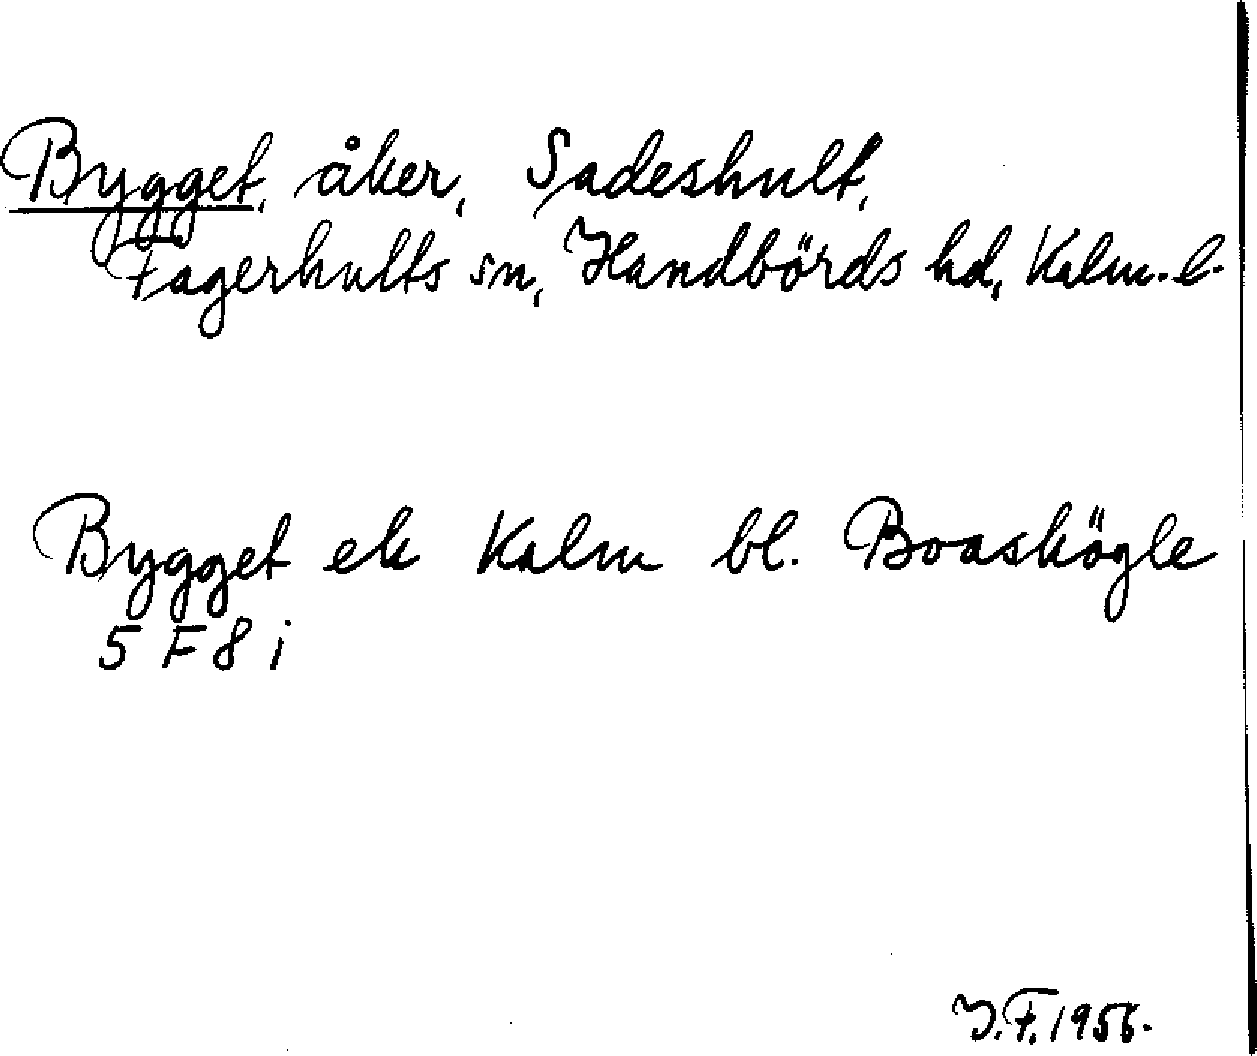 Bygget, åker, Sadeshult,
Fagerhults sn, Handbörds hd, Kalm. l.
Bygget ek Kalm bl. Boaskögle
5 F 8 i
I.F. 1956.